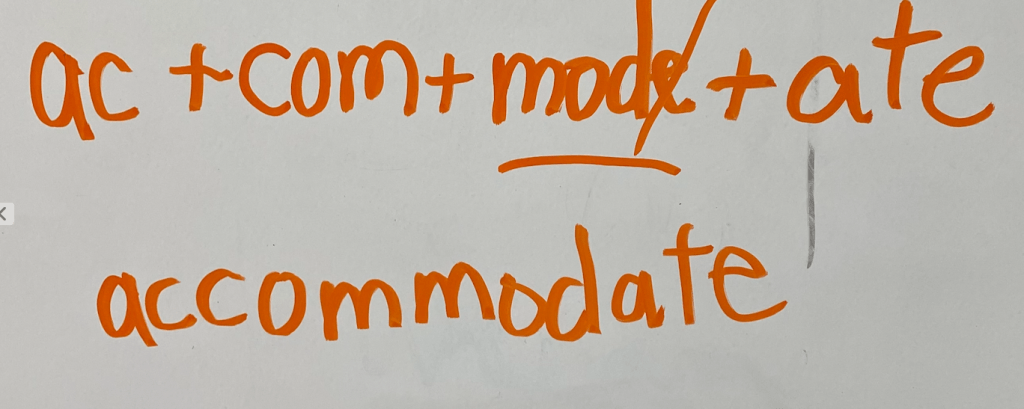 ac + com + mode + ate
accommodate